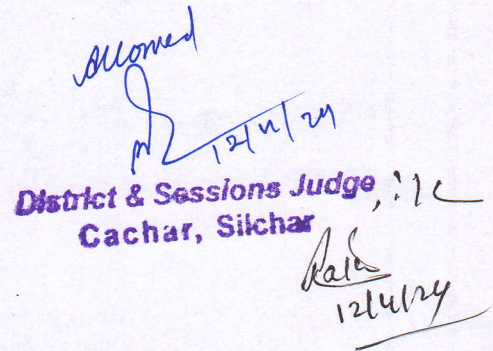 Allowed
12/4/24
District & Sessions Judge
Cachar, Silchar
12/4/24